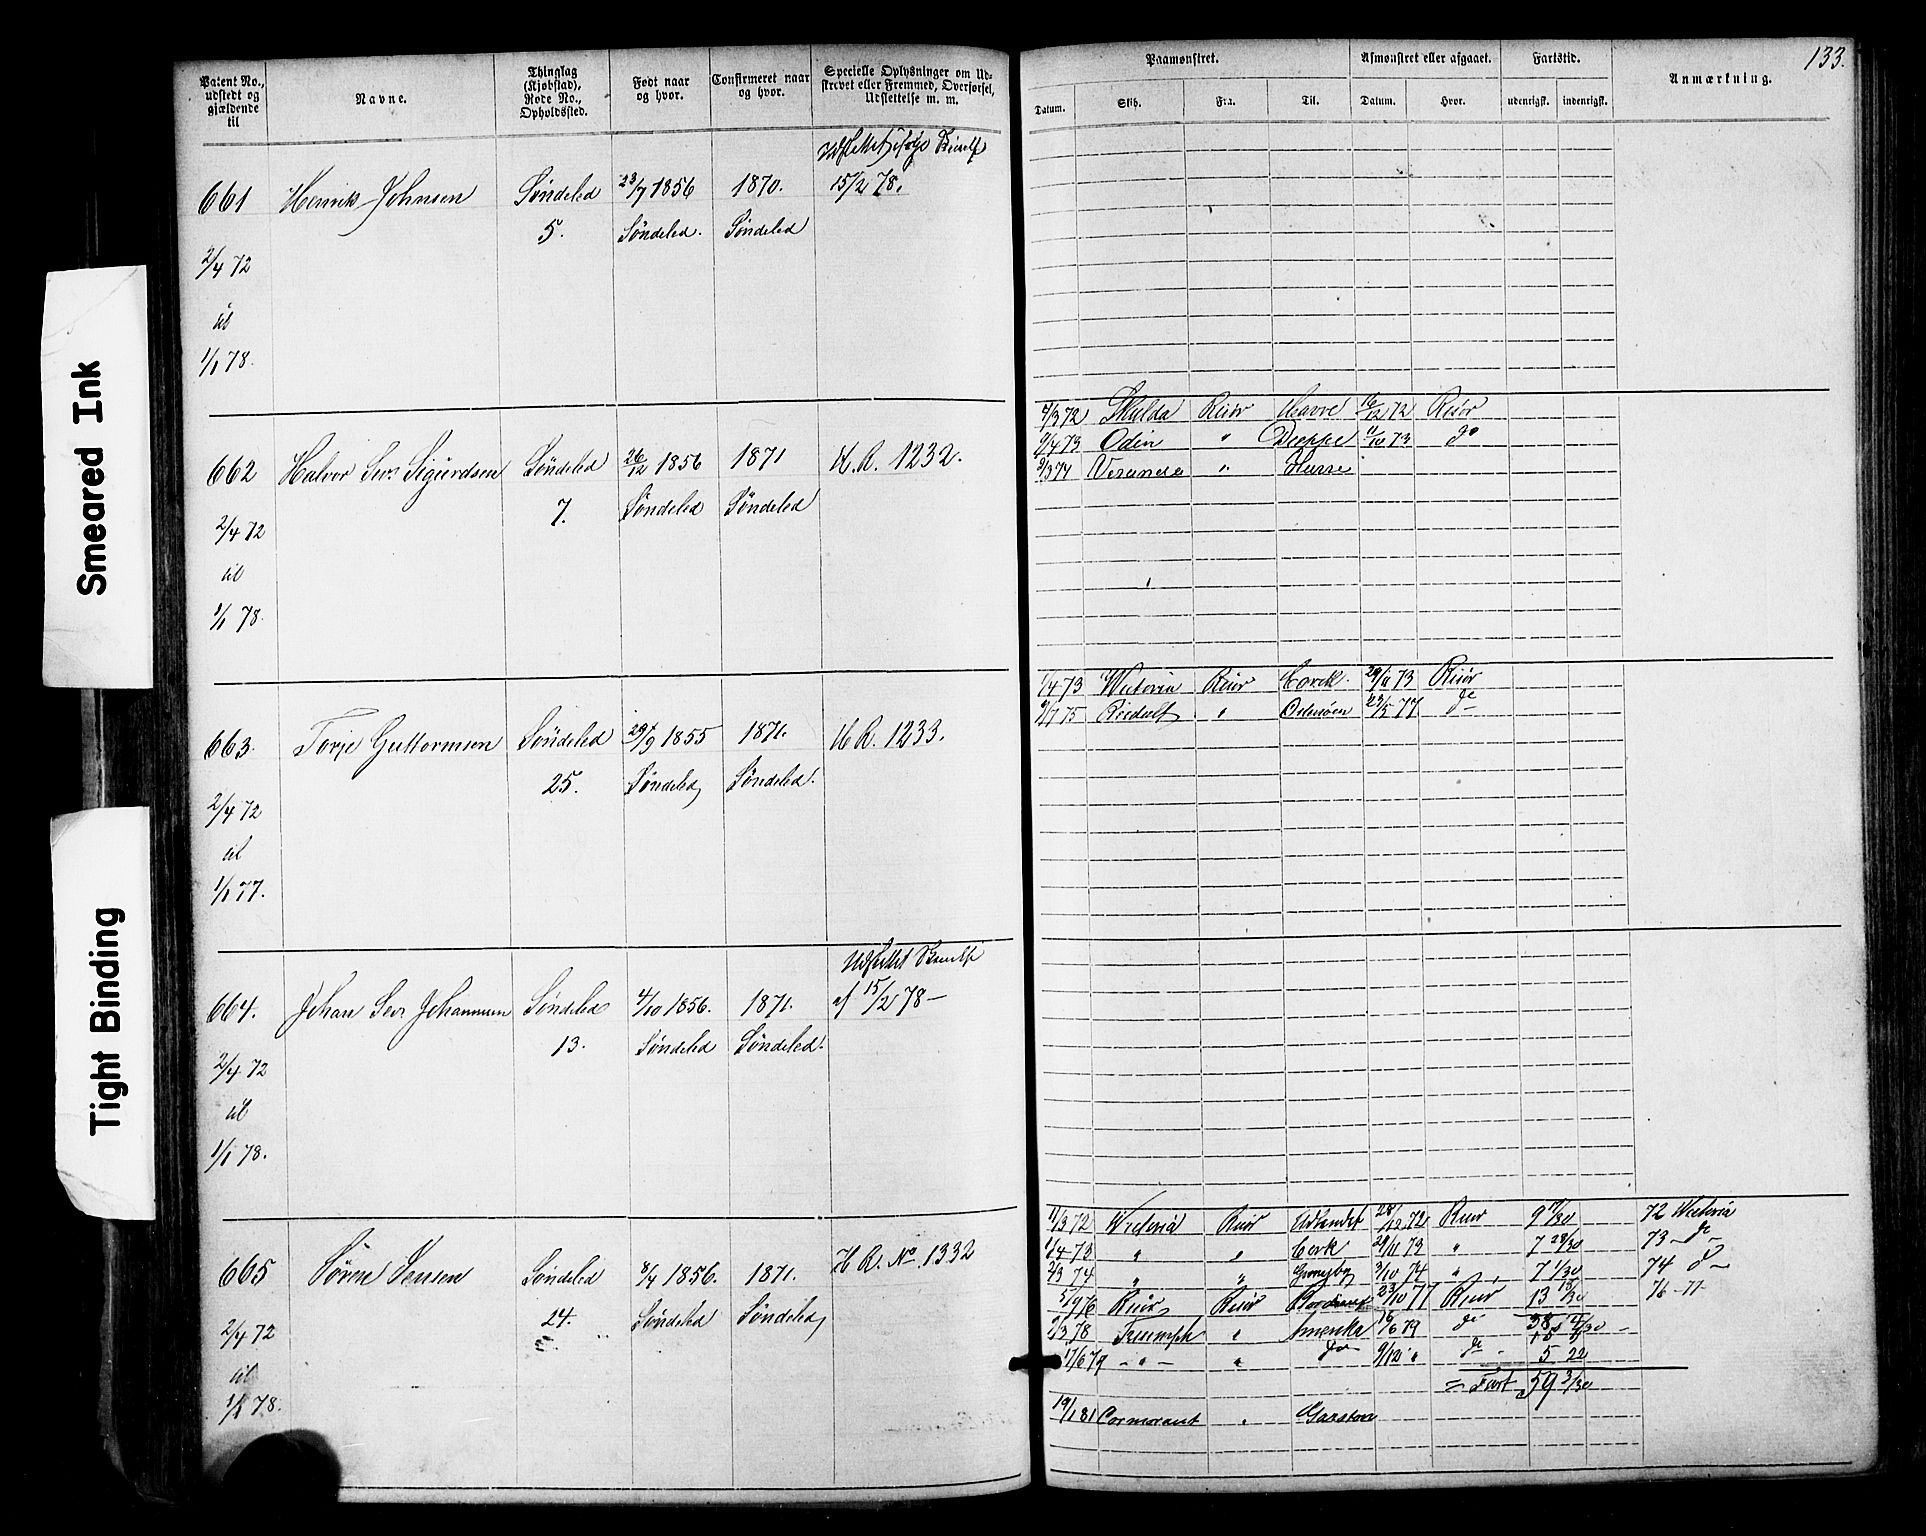 133.
Patent No., udstedt og gjældende til
Navne.
Thinglag (Kjøbstad), Rode No., Opholdssted.
Født naar og hvor.
Confirmeret naar og hvor.
Specielle Oplysninger om Udskrevet eller Fremmed, Overførsel, Udslettelse m. m.
Paamønstret.
Afmønstret eller afgaaet.
Fartstid.
Anmærkning.
Datum. Skib. Fra. Til. Datum. Hvor. udenrigsk. indenrigsk.
661 Henrik Johnsen Søndeled 23/7 1856 1870. 15/2 78.
5. Søndeled. Søndeled
2/4 72
til
1/1 78.
4/3 72 Skulda Risør Havre 16/12 72 Risør
9/4 73 Odin " Dieppe 11/10 73 do
3/3 74 Veranda "
662 Halvor Sev. Sigurdsen Søndeled 26/12 1856 1871 H. R. 1232.
7. Søndeled Søndeled
2/4 72
til
1/1 78.
1/4 73 Victoria Risør Cork. 29/11 73 Risør
23/5 77 do
663. Torje Guttormsen Søndeled 29/9 1855 1871. H R. 1233.
25. Søndeled Søndeled.
2/4 72
til
1/1 77.
Udslettet
664. Johan Sev. Johannesen Søndeled 4/10 1856. 1871. af 15/2 78 –
13. Søndeled Søndeled.
2/4 72
til
1/1 78.
11/3 72 Victoria Risør Udlandet 28/12 72 Risør 9 17/30 72 Victoria
1/4 73 " " Cork 29/11 73 " 7 28/30 73 – do –
2/3 74 " " 3/10 74 " 7 1/30 74 d –
5/9 76 Risør Risør 23/10 77 Risør 13 76 – 77
665 Søren Jensen Søndeled 8/7 1856. 1871. H R. No. 1332
24. Søndeled Søndeled
2/4 72
til
1/1 78.
2/3 78 Triumph " Amerika 19/6 79 do
17/6 79 – " – " do 9/12 " do – 5 22
= Fart 59 3/30
19/1 81 Cormorant " Garston
Smeared Ink
Tight Binding